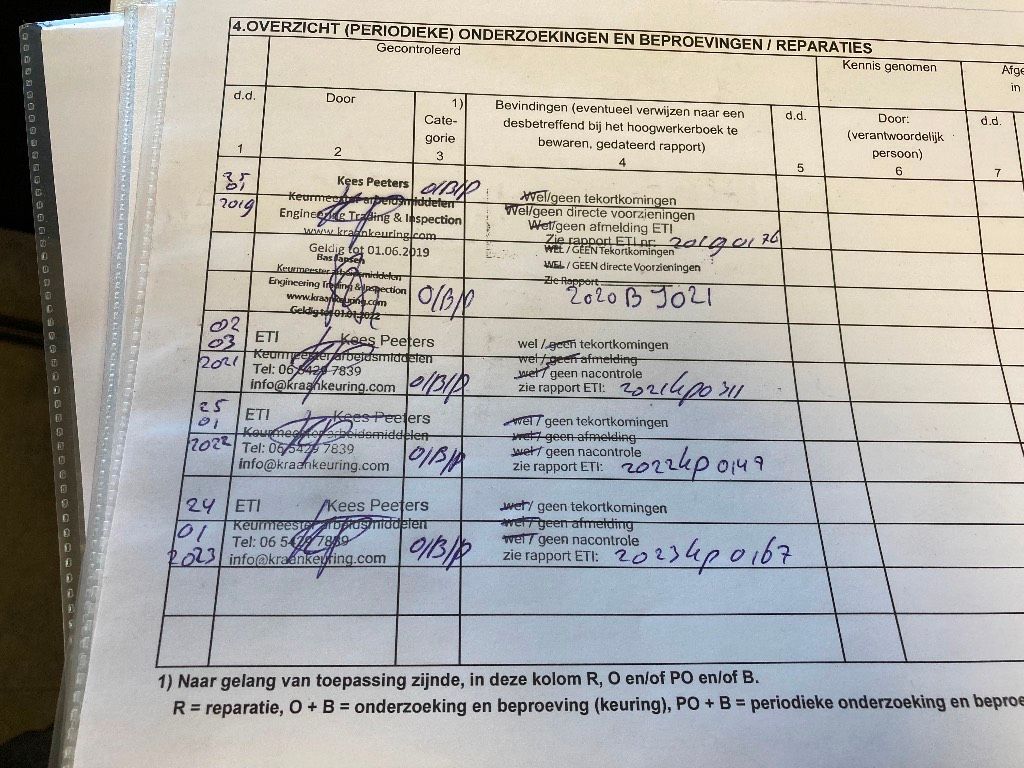 4.OVERZICHT (PERIODIEKE) ONDERZOEKINGEN EN BEPROEVINGEN / REPARATIES
Gecontroleerd
Kennis genomen
Afge
in
d.d.
Door
1)
Cate-
gorie
Bevindingen (eventueel verwijzen naar een
desbetreffend bij het hoogwerkerboek te
bewaren, gedateerd rapport)
d.d.
Door:
(verantwoordelijk
persoon)
d.d.
1
2
3
4
5
6
7
25
01
2019
Kees Peeters
Keurmeester arbeidsmiddelen
Engineering Trading & Inspection
www.kraankeuring.com
Geldig tot 01.06.2019
O/B/P
Wel/geen tekortkomingen
Wel/geen directe voorzieningen
Wel/geen afmelding ETI
Zie rapport ETI nr: 20190176
Bas Jansen
Keurmeester arbeidsmiddelen
Engineering Trading & Inspection
www.kraankeuring.com
Geldig tot 01.01.2022
O/B/P
WEL / GEEN Tekortkomingen
WEL / GEEN directe Voorzieningen
Zie Rapport
2020BJ021
02
03
2021
ETI Kees Peeters
Keurmeester arbeidsmiddelen
Tel: 06 5429 7839
info@kraankeuring.com
O/B/P
wel / geen tekortkomingen
wel / geen afmelding
wel / geen nacontrole
zie rapport ETI: 2021kp0311
25
01
2022
ETI Kees Peeters
Keurmeester arbeidsmiddelen
Tel: 06 5429 7839
info@kraankeuring.com
O/B/P
wel / geen tekortkomingen
wel / geen afmelding
wel / geen nacontrole
zie rapport ETI: 2022kp0149
24
01
2023
ETI Kees Peeters
Keurmeester arbeidsmiddelen
Tel: 06 5429 7839
info@kraankeuring.com
O/B/P
wel / geen tekortkomingen
wel / geen afmelding
wel / geen nacontrole
zie rapport ETI: 2023kp0167
1) Naar gelang van toepassing zijnde, in deze kolom R, O en/of PO en/of B.
R = reparatie, O + B = onderzoeking en beproeving (keuring), PO + B = periodieke onderzoeking en beproe